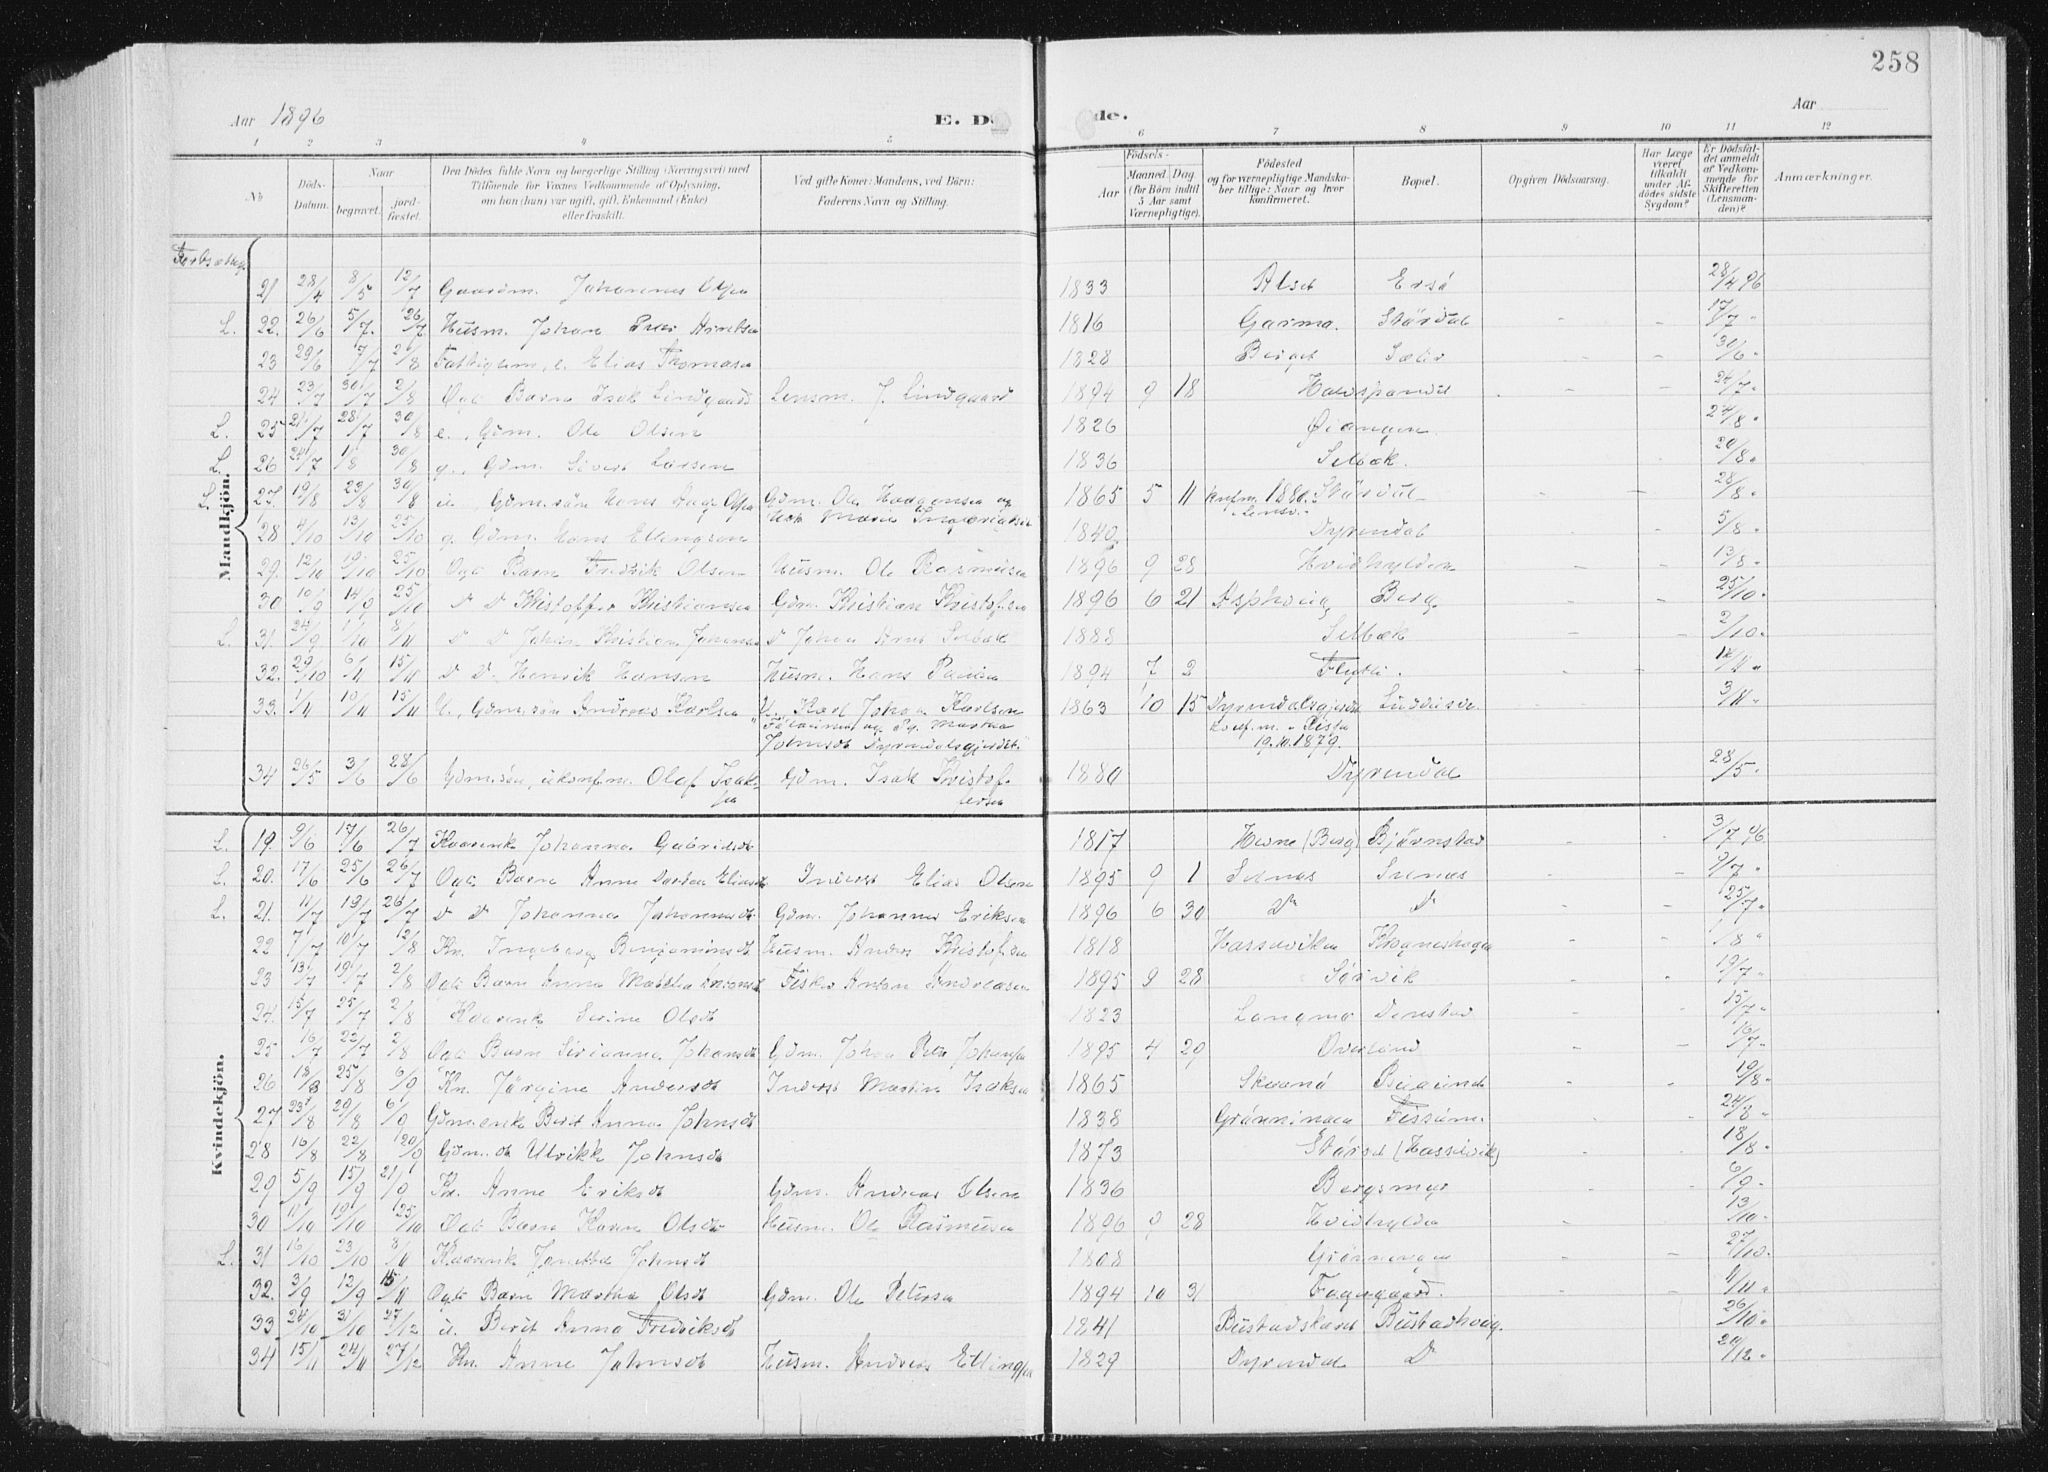 258
Aar 1896 E. Dö de. Aar
1 2 3 4 5 6 7 8 9 10 11 12
No Döds-Datum. Naar begravet. jord-fæstet. Den Dödes fulde Navn og borgerlige Stilling (Næringsvei) med Tilföiende for Voxnes Vedkommende af Oplysning, om han (hun) var ugift, gift, Enkemand (Enke) eller fraskilt. Ved gifte Koner: Mandens, ved Börn: Faderens Navn og Stilling. Födsels- Aar Maaned Dag (for Börn indtil 5 Aar samt Værnepligtige). Födested og for værnepligtige Mandskaber tillige: Naar og hvor konfirmeret. Bopæl. Opgiven Dödsaarsag. Har Læge været tilkaldt under Afdödes sidste Sygdom? Er Dödsfaldet anmeldt af Vedkommende for Skifteretten (Lensmanden)? Anmærkninger.
Mandkjön.
21 28/4 8/5 12/7 Gaardm. Johannes Olsen 1833 Alset Ersö 28/4 96
L. 22. 26/6 5/7. 26/7 Husm. Johan Peter Arntsen 1816 Garma. Størdal - - 17/7 "
23 29/6 7/7 2/8 Fattiglem, e. Elias Thomasen 1828 Berget Sæter - - 30/6 "
24 23/7 30/7 2/8 Ægt Barn Isak Lindgaard Lensm. J. Lindgaard 1894 9 18 - - 24/7 "
L. 25 21/7 28/7 30/8 e., Gdm. Ole Olsen 1826 Øiangen 24/8 "
L. 26 24/7 1/8 30/8 g., Gdm. Sivert Larsen 1836 Selbæk. 20/8 "
L 27. 19/8 23/8 30/8 u., Gdm.søn Hans Aage Olsen Gdm. Ole Haagensen og 1865 5 11 konfm. 1880 Størdal - - 28/8 "
28 4/10 13/10 25/10 g. Gdm. Hans Ellengsen 1840 Dyrendal 5/8 "
29. 12/10 19/10 25/10 Ægt Barn Fredrik Olsen Husm. Ole Rasmusen 1896 9 28 Hvidhylden - - 13/8 "
30 10/9 14/9 25/10 D D Kristoffer Kristiansen Gdm. Kristian Kristofsen 1896 6 21 Asphaug Berg - - 25/10 "
L. 31. 24/9 1/10 8/11 D D Johan Kristian Johansen D Johan Arnt Selbæk 1888 Selbæk - - 2/10 "
32. 29/10 6/11 15/11 D D. Henrik Hansen Husm. Hans Paulsen 1894 7 2 - - 12/11 "
33. 1/11 10/11 15/11 U., Gdm.søn Andreas Karlsen U. Karl Johan Karlsen 1863 10 15 Dyrendalsgjerdet 3/11 "
og Pg. Martha konfm. i Rista
Johnsdt Dyrendalsgjerdet. 19.10.1879.
34 26/5 3/6 28/6 Gdm.søn, ukonfm. Olaf Isak- Gdm. Isak Kristof- 1880 Dyrendal 28/5 "
sen fersen
Kvindekjön.
L. 19. 9/6 17/6 26/7 Kaarenk Johanna Gabrielsdt 1817 Hevne (Berg) Bjørnstad - 3/7 96
L. 20. 17/6 25/6 26/7 Ægt Barn Anne Dorthea Eliasdt Inderst Elias Olsen 1895 9 1 Selnæs Selnæs - - 9/7 "
L. 21. 11/7 19/7 26/7 D D Johanna Johannesdt Gdm. Johannes Eriksen 1896 6 30 D D - - 25/7 "
22 7/7 10/7 12/8 Kn. Ingeborg Benjaminsdt Husm. Anders Kristofsen 1818 Hasselviken Krogneshagen - - 1/8 "
23 13/7 19/7 2/8 Ægt Barn Anna Mathea Antonsdt Fisker Anton Andreasen 1895 9 28 Sørvik - - 19/7 "
24. 15/7 25/7 2/8 Kaarenk Serine Olsdt 1823 Langmo Denstad - - 15/7 "
25 16/7 22/7 2/8 Ægt Barn Sirianna Johansdt Gdm. Johan Peter Johansen 1895 4 29 Overland - - 16/7 "
26 18/8 25/8 6/9 Kn. Jørgine Andersdt Inderst Martin Isaksen 1865 - - 19/8 "
27 23/8 29/8 6/9 Gdmenke Berit Anna Johnsdt 1838 Grønningen - - 24/8 "
28 16/8 22/8 20/9 Gdm.dt Ulrikke Johnsdt 1873 Størset (Hasselvik) 18/8 "
29 5/9 15/9 21/9 Kn. Anne Eriksdt Gdm. Andreas Olsen 1836 Bergsmyr - - 6/9 "
30 11/10 19/10 25/10 Ægt Barn Karen Olsdt Husm. Ole Rasmusen 1896 9 28 Hvidhylden - - 13/10 "
L. 31 16/10 23/10 8/11 Kaarenk Jonetta Johnsdt 1808 Grønningen - - 27/10 "
32. 3/9 12/9 15/11 Ægt Barn Martha Olsdt Gdm. Ole Petersen 1894 10 31 Fagergaard. - - 11/11 "
33 24/10 31/10 27/12 u. Berit Anna Fredriksdt 1841 Bustadskaret Bustadhaug. 26/10 "
34 15/11 24/11 27/12 Kn. Anne Johnsdt Husm. Andreas Ellingsen 1829 Dyrendal D 24/12 "